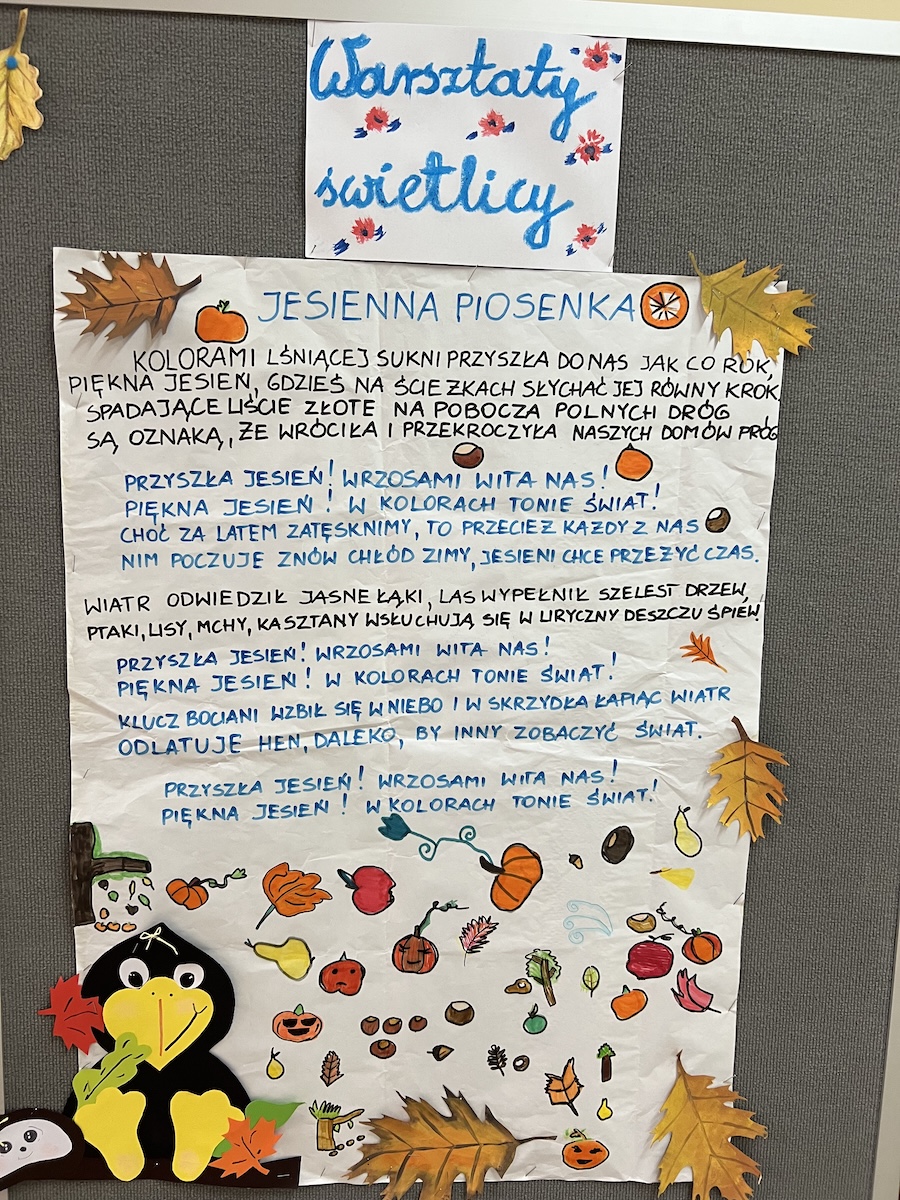 Warsztaty
świetlicy
JESIENNA PIOSENKA
KOLORAMI LŚNIĄCEJ SUKNI PRZYSZŁA DO NAS JAK CO ROK,
PIĘKNA JESIEŃ, GDZIEŚ NA ŚCIEŻKACH SŁYCHAĆ JEJ RÓWNY KROK.
SPADAJĄCE LIŚCIE ZŁOTE NA POBOCZA POLNYCH DRÓG
SĄ OZNAKĄ, ŻE WRÓCIŁA I PRZEKROCZYŁA NASZYCH DOMÓW PRÓG
PRZYSZŁA JESIEŃ! WRZOSAMI WITA NAS!
PIĘKNA JESIEŃ! W KOLORACH TONIE ŚWIAT!
CHOĆ ZA LATEM ZATĘSKNIMY, TO PRZECIEŻ KAŻDY Z NAS
NIM POCZUJE ZNÓW CHŁÓD ZIMY, JESIENI CHCE PRZEŻYĆ CZAS.
WIATR ODWIEDZIŁ JASNE ŁĄKI, LAS WYPEŁNIŁ SZELEST DRZEW,
PTAKI, LISY, MCHY, KASZTANY WSŁUCHUJĄ SIĘ W LIRYCZNY DESZCZU ŚPIEW.
PRZYSZŁA JESIEŃ! WRZOSAMI WITA NAS!
PIĘKNA JESIEŃ! W KOLORACH TONIE ŚWIAT!
KLUCZ BOCIANI WZBIŁ SIĘ W NIEBO I W SKRZYDŁA ŁAPIĄC WIATR
ODLATUJE HEN, DALEKO, BY INNY ZOBACZYĆ ŚWIAT.
PRZYSZŁA JESIEŃ! WRZOSAMI WITA NAS!
PIĘKNA JESIEŃ! W KOLORACH TONIE ŚWIAT!